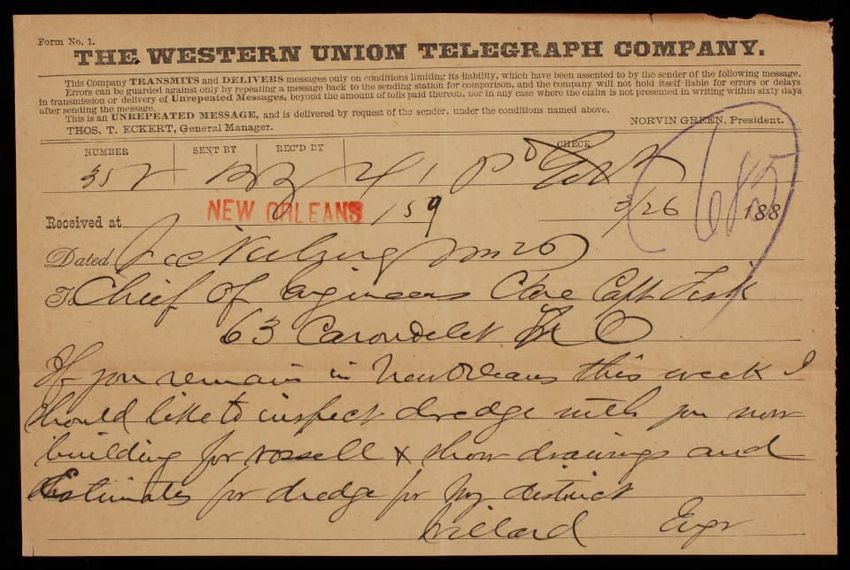 Form No. 1.
THE WESTERN UNION TELEGRAPH COMPANY.
This Company TRANSMITS and DELIVERS messages only on conditions limiting its liability, which have been assented to by the sender of the following message.
Errors can be guarded against only by repeating a message back to the sending station for comparison, and the company will not hold itself liable for errors or delays
in transmission or delivery of Unrepeated Messages, beyond the amount of tolls paid thereon, nor in any case where the claim is not presented in writing within sixty days
after sending the message.
This is an UNREPEATED MESSAGE, and is delivered by request of the sender, under the conditions named above.
THOS. T. ECKERT, General Manager. NORVIN GREEN, President.
NUMBER SENT BY REC'D BY CHECK
352
Received at NEW ORLEANS 159 3/26 188
685
Dated Vicksburg 26
To Chief of Engineers Care Capt Fisk
63 Carondelet N O
If you remain in New Orleans this week I
should like to inspect dredge with you now
building for Rossell & show drawings and
Estimates for dredge for my district
Willard Engr